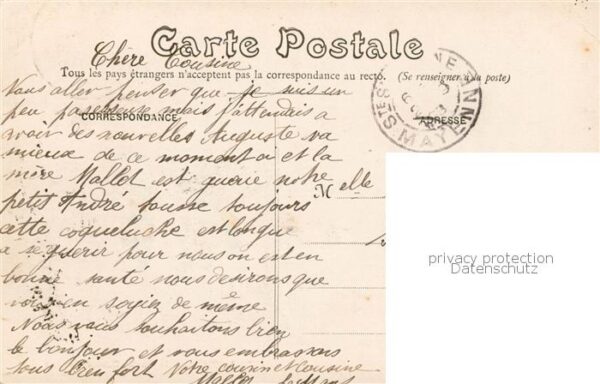 Carte Postale
Chère Cousine
Tous les pays étrangers n'acceptent pas la correspondance au recto. (Se renseigner à la poste)
Vous aller penser que je suis un
peu paresseuse mais j'attendais a
CORRESPONDANCE
ADRESSE
avoir des nouvelles Auguste va
mieux de ce moment ci et la
mère Mallet est guerie notre
petit André tousse toujours
cette coqueluche est longue
a se guerir pour nous on est en
bonne santé nous desirons que
vous en soyiez de même
Nous vous souhaitons bien
le bonjour et vous embrassons
tous bien fort Votre cousin et Cousine
Mallet
Melle
MAYENNE
privacy protection
Datenschutz